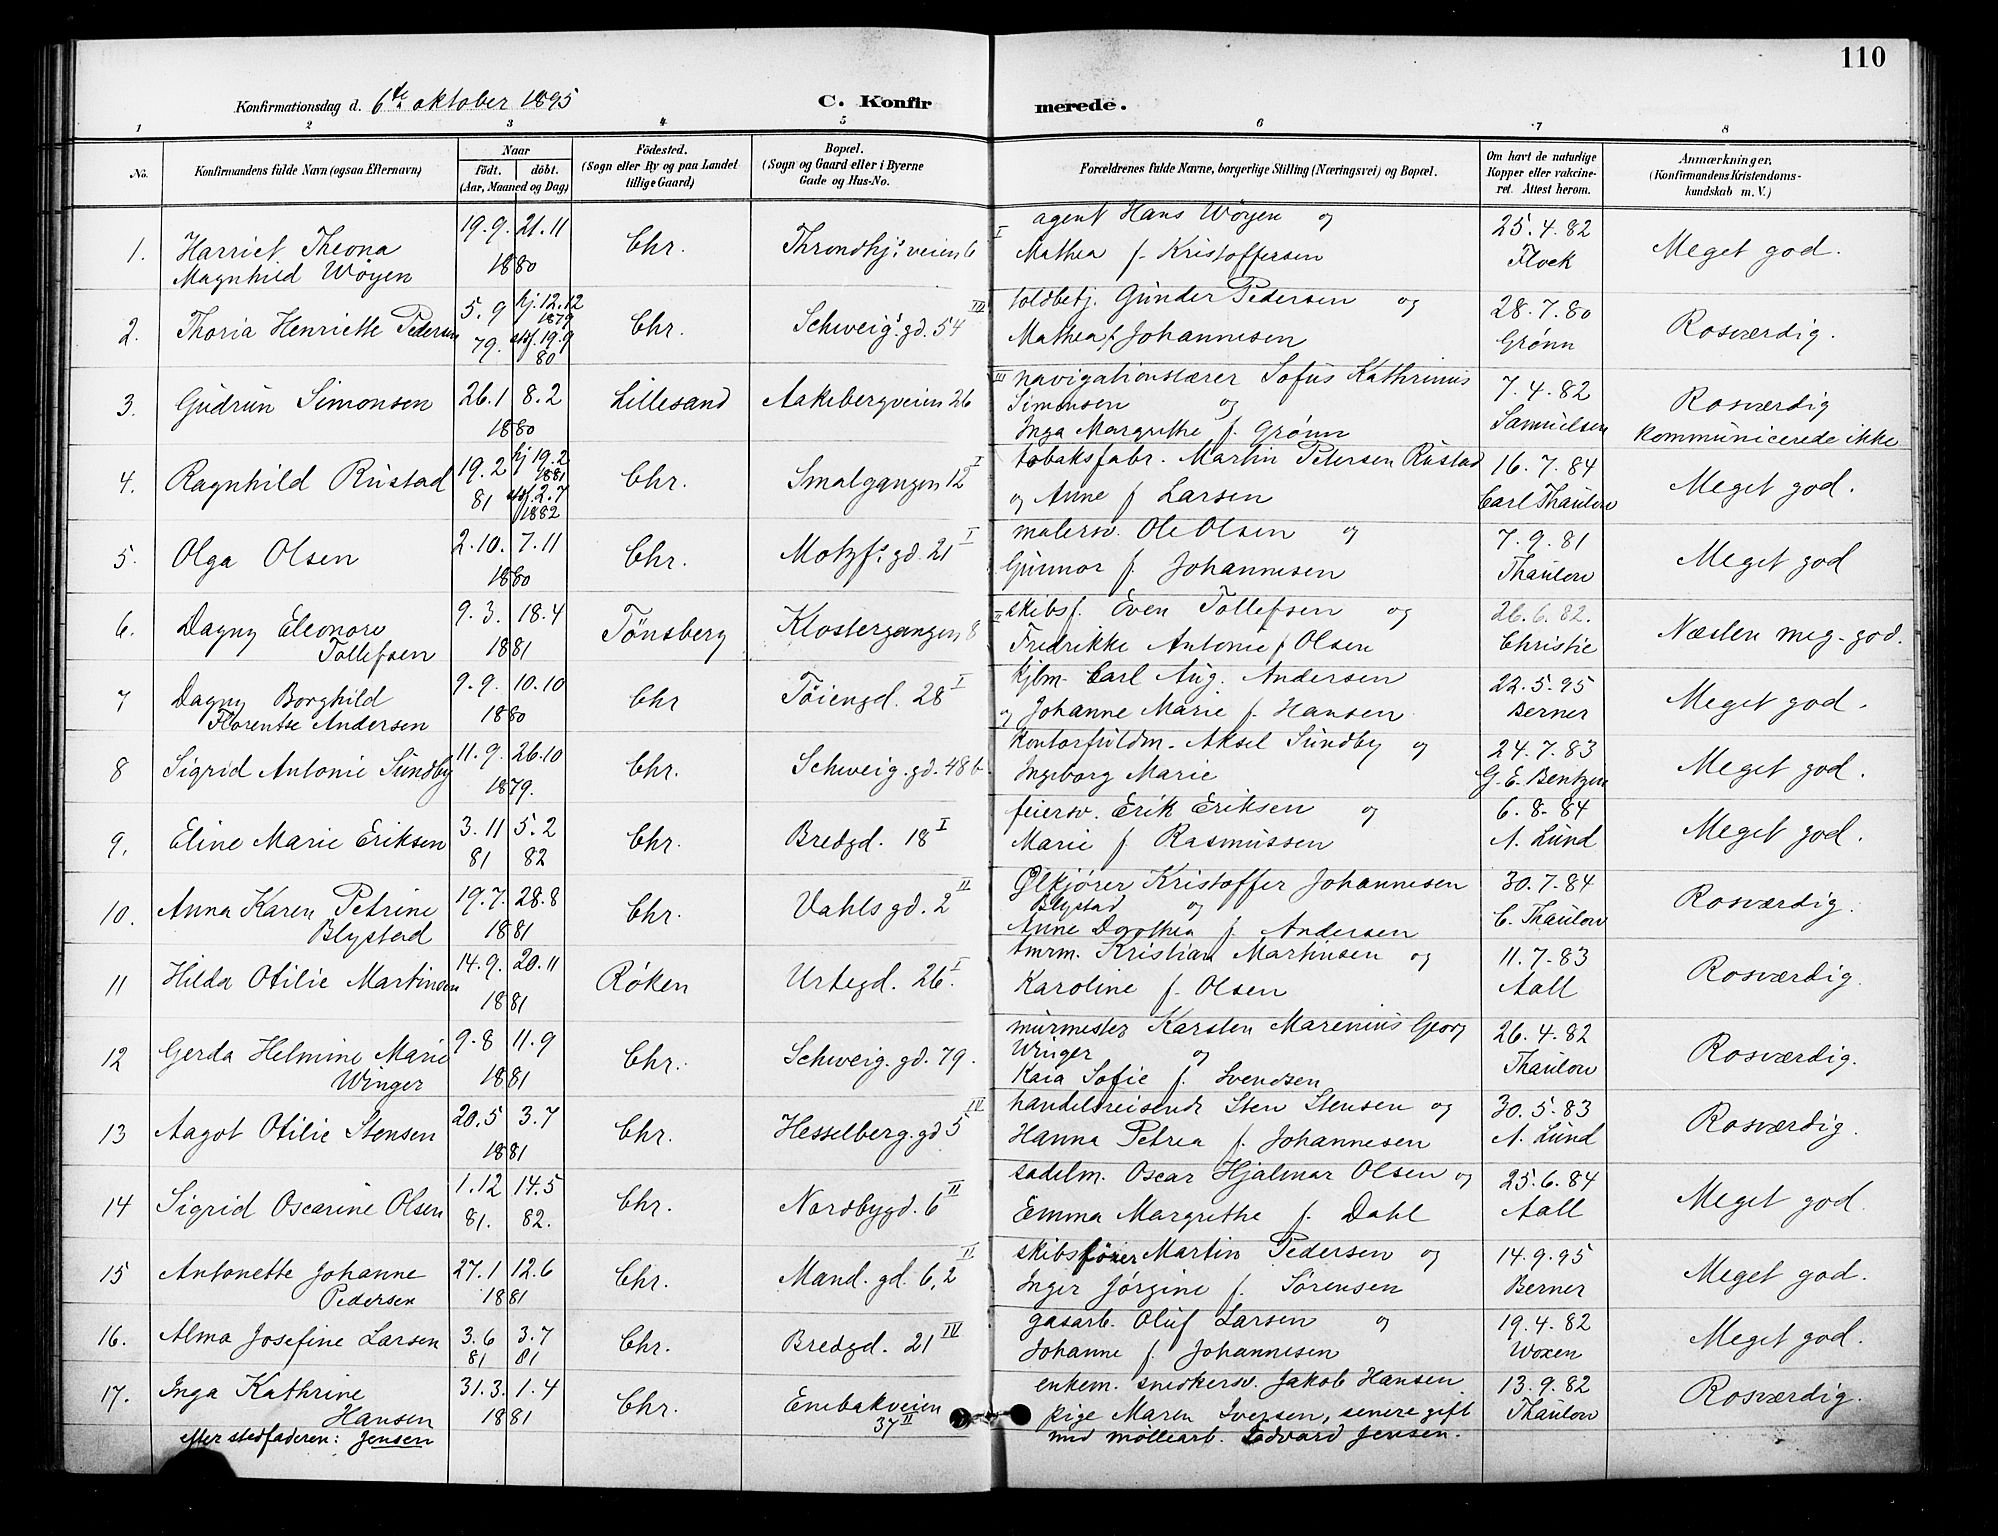 110
Konfirmationsdag d. 6te oktober 1895 C. Konfirmerede.
1 2 3 4 5 6 7 8
No. Konfirmandens fulde Navn (ogsaa Efternavn) Naar Födt. döbt. (Aar, Maaned og Dag) Födested. (Sogn eller By og paa Landet tillige Gaard) Bopæl. (Sogn og Gaard eller i Byerne Gade og Hus-No. Forældrenes fulde Navne, borgerlige Stilling (Næringsvei) og Bopæl. Om havt de naturlige Kopper eller vakcineret. Attest herom. Anmærkninger, (Konfirmandens Kristendomskundskab m. V.)
1. Harriet Theona 19.9. 21.11 Chr. Throndhj.s veien 6 I agent Hans Wøyen og 25.4.82 Meget god.
Magnhild Wøyen 1880 Mathea f. Kristoffersen Flock
2. Thoria Henriette Pedersen 5.9 79. hj. 12.12 1879 stsf. 19.9 80 Chr. Schweig.s gd. 54 III toldbetj. Gunder Pedersen og 28.7.80 Rosværdig.
Mathea f. Johannesen Grønn
3. Gudrun Simonsen 26.1 8.2 Lillesand Aakebergveien 26 III navigationslærer Sofus Kathrinus 7.4.82 Rosværdig
1880 Simonsen og Samuelsen kommunicerede ikke
Inga Margrethe f. Grønn
4. Ragnhild Rustad 19.2 81 hj 19.2 1881 stsf. 2.7 1882 Chr. Smalgangen 12 I tobaksfabr. Martin Petersen Rustad 16.7.84 Meget god.
og Anne f Larsen Carl Thaulow
5. Olga Olsen 2.10. 7.11 Chr. Motzf.s gd. 21 I malersv. Ole Olsen og 7.9.81 Meget god
1880 Gunnor f. Johannesen Thaulow
6. Dagny Eleonore 9.3. 18.4 Tönsberg Klostergangen 8 II skibsf. Even Tollefsen og 26.6.82. Næsten meg. god.
Tollefsen 1881 Fredrikke Antonie f Olsen Christie
7 Dagny Borghild 9.9. 10.10 Chr Töiengd. 28 I kjlm. Carl Aug. Andersen 22.5.95 Meget god.
Florentse Andersen 1880 og Johanne Marie f. Hansen Berner
8 Sigrid Antonie Sundby 11.9. 26.10 Chr. Schweig. gd. 48 b kontorfuldm. Aksel Sundby og 24.7.83 Meget god.
1879. Ingeborg Marie G. E. Bentzen
9. Eline Marie Eriksen 3.11 5.2 Chr. Bredgd. 18 I feiersv. Erik Eriksen og 6.8.84 Meget god.
81 82 Marie f Rasmussen A. Lund
10. Anna Karen Petrine 19.7. 28.8 Chr. Vahls gd. 2 II Ølkjører Kristoffer Johannesen 30.7.84 Rosværdig.
Blystad 1881 Blystad og C. Thaulow
Anne Dorthea f. Andersen
11 Hilda Otilie Martinsen 14.9. 20.11 Røken Urtegd. 26. I tmrm. Kristian Martinsen og 11.7.83 Rosværdig.
1881 Karoline f. Olsen Aall
12 Gerda Helmine Marie 9.8 11.9 Chr. Schweig. gd. 79. murmester Karsten Marenius Georg 26.4.82 Rosværdig.
Winger 1881 Winger og Thaulow
Kaia Sofie f. Svendsen
13 Aagot Otilie Stensen 20.5 3.7 Chr. Hesselberg. gd 5 IV handelsreisende Sten Stensen og 30.5.83 Rosværdig.
1881 Hanna Petrea f. Johannesen A. Lund
14 Sigrid Oscarine Olsen 1.12 14.5 Chr. Nordbygd. 6 II sadelm. Oscar Hjalmar Olsen og 25.6.84 Meget god.
81. 82. Emma Margrethe f. Dahl Aall
15 Antonette Johanne 27.1 12.6 Chr. Mand. gd. 6, 2 II skibsfører Martin Pedersen og 14.9.95 Meget god.
Pedersen 1881 Inger Jørgine f. Sørensen Berner
16. Alma Josefine Larsen 3.6 3.7 Chr. Bredgd. 21 IV gasarb. Oluf Larsen og 19.4.82 Meget god.
81 81 Johanne f. Johannesen Woxen
17. Inga Kathrine 31.3. 1.4 Chr. Enebakveien enkem. snedkersv. Jakob Hansen 13.9.82 Rosværdig.
Hansen 1881 37 II pige Maren Iversen, senere gift Thaulow
efter stedfaderen: Jensen med møllearb. Edvard Jensen.